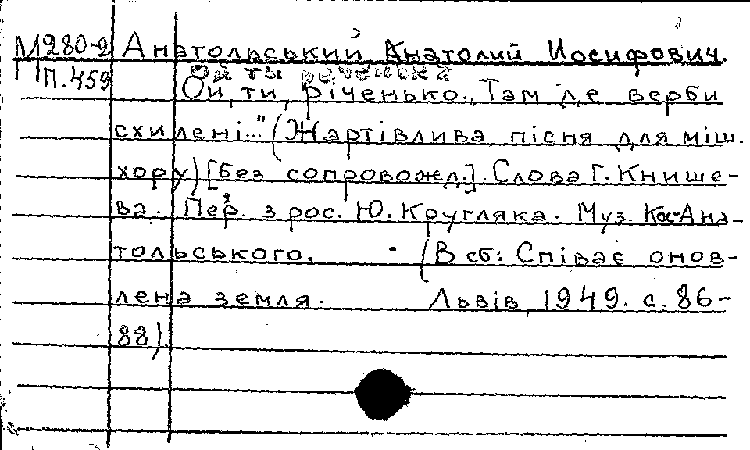 М280-2 Анатольський, Анатолий Иосифович.
П.459 Ой ты реченька
Ой, ти, річенько. „Там де верби
схилені..." (Жартівлива пісня для міш.
хору) [без сопровожд.]. Слова Г. Книше-
ва. Пер. з рос. Ю. Кругляка. Муз. Ана-
тольського. (В сб: Співає онов-
лена земля. Львів, 1949. с. 86-
88).